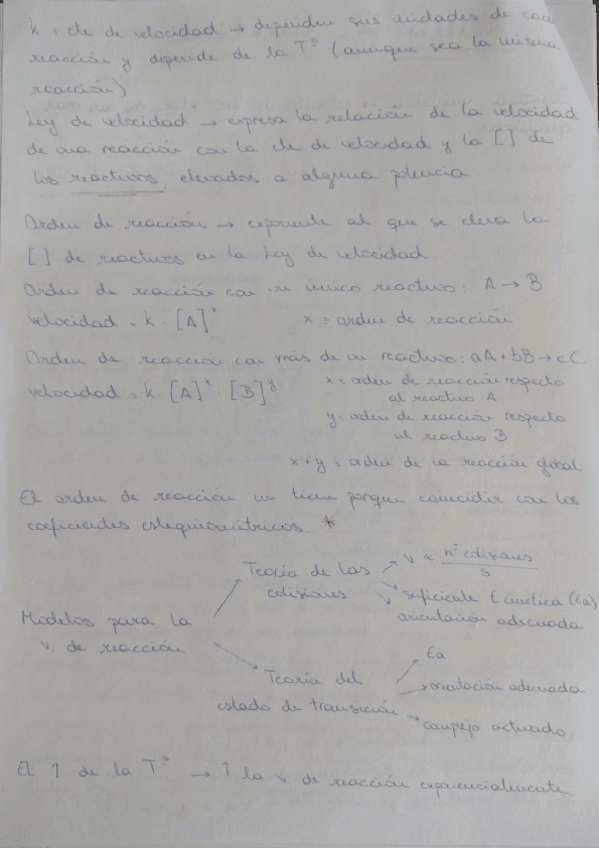 k = cte de velocidad → dependen sus unidades de cada
reacción y depende de la Tª (aunque sea la misma
reacción)
Ley de velocidad → expresa la relación de la velocidad
de una reacción con la cte de velocidad y la [] de
los reactivos elevados a alguna potencia
Orden de reacción → exponente al que se eleva la
[] de reactivos en la Ley de velocidad.
Orden de reacción con un único reactivo: A → B
velocidad = k · [A]ˣ x = orden de reacción
Orden de reacción con más de un reactivo: aA + bB → cC
velocidad = k [A]ˣ · [B]ʸ x = orden de reacción respecto
al reactivo A
y = orden de reacción respecto
al reactivo B
x + y = orden de la reacción global
El orden de reacción no tiene porque coincidir con los
coeficientes estequiométricos. *
Modelos para la
v. de reacción
Teoría de las
colisiones
v ∝ nº colisiones / s
suficiente E cinética (Ea)
orientación adecuada
Teoría del
estado de transición
Ea
orientación adecuada
complejo activado
El ↑ de la Tª → ↑ la v de reacción exponencialmente